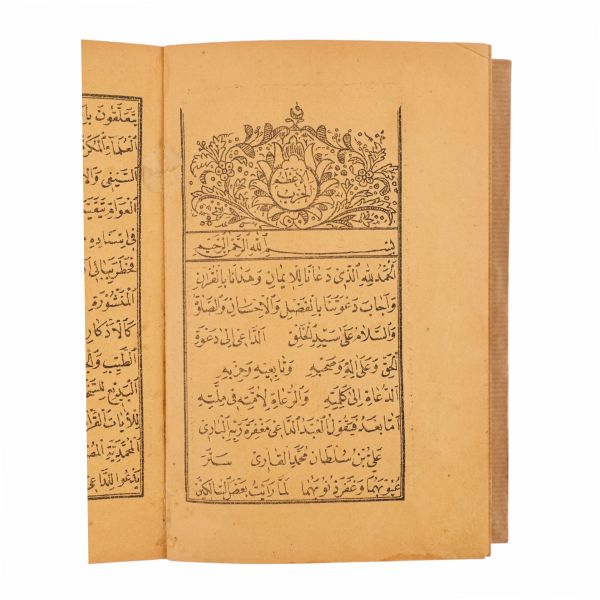 الأعظم
الحزب
بسم الله الرحمن الرحيم
الحمد لله الذي دعانا للإيمان وهدانا بالقرآن
وأجاب دعوتنا بالفضل والإحسان والصلاة
والسلام على سيد الخلق الداعي إلى دعوة
الحق وعلى آله وصحبه وتابعيه وحزبه
الدعاة إلى كلمته والرعاة لأمته في ملته
أما بعد فيقول العبد الداعي مغفرة ربه الباري
علي بن سلطان محمد القاري ستر
عيوبهما وغفر ذنوبهما لما رأيت بعض السالكين
يتعلقون با
العلماء المكر
السيفي والا
العوام تتقيد
في إسناده
فخطر ببالي ا
المنشورة
كالأذكار
الطيب وا
البديع للسخا
للآيات القرا
المحمدية المص
يدعو للداعي